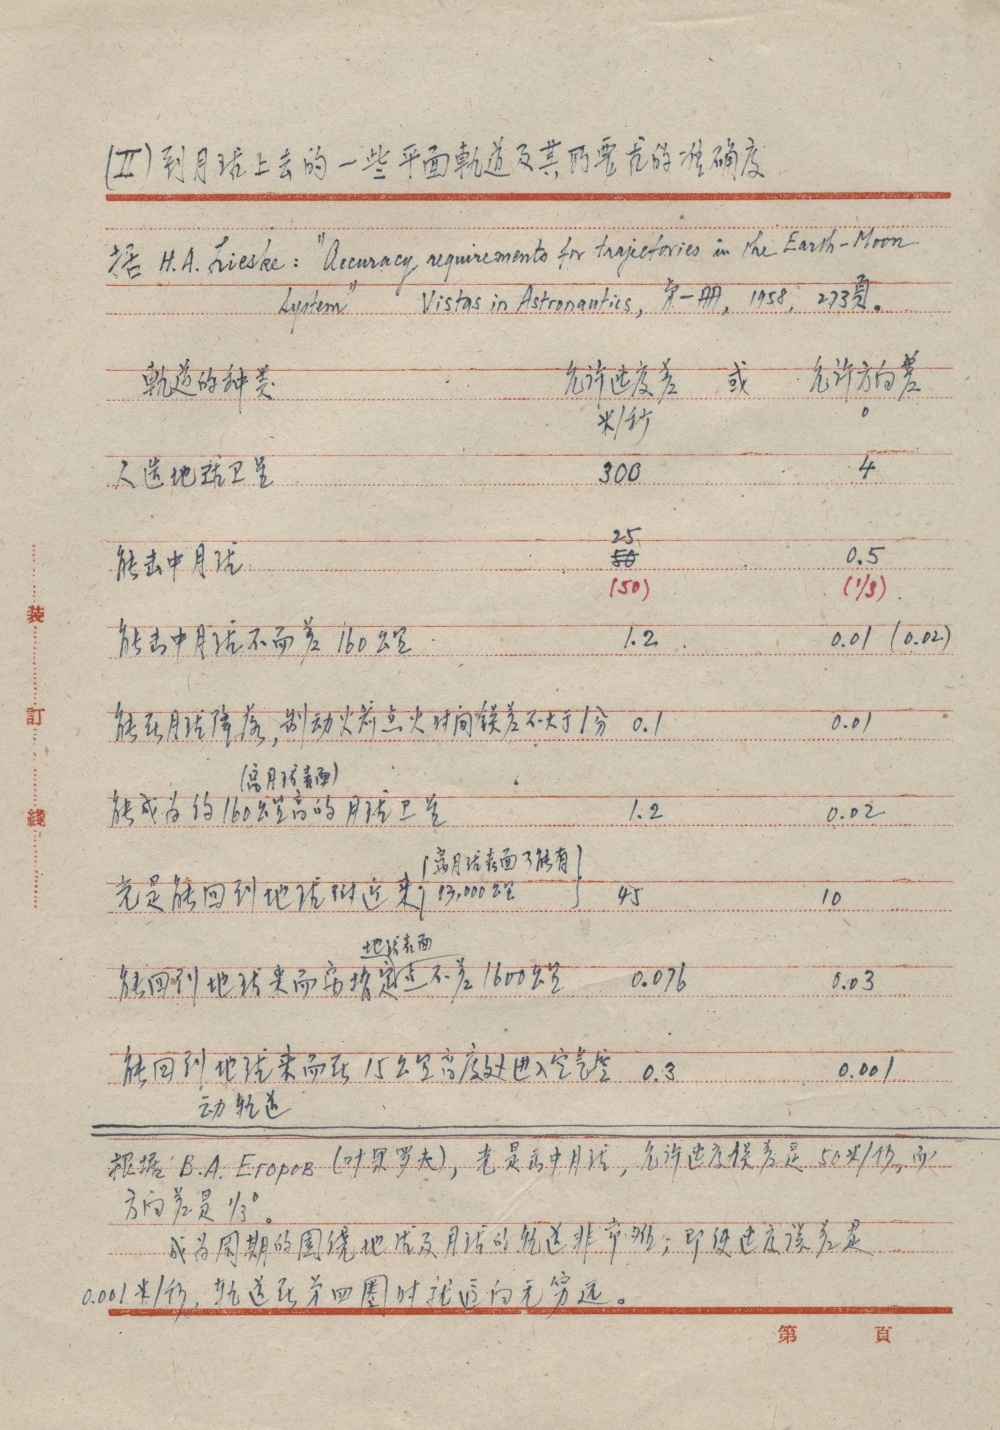 (II) 到月球上去的一些平面軌道及其所要求的准确度
据 H.A. Lieske: "Accuracy requirements for trajectories in the Earth-Moon
System" Vistas in Astronautics, 第一册, 1958, 273頁。
軌道的种类 允许速度差 或 允许方向差
米/秒 °
人造地球卫星 300 4
25
能击中月球 50 0.5
(50) (1/3)
能击中月球不而差 160公里 1.2 0.01 (0.02)
能在月球降落, 制动火箭点火时间误差不大于1分 0.1 0.01
(离月球表面)
能成为约160公里高的月球卫星 1.2 0.02
离月球表面可能有
光是能回到地球附近来 83,000公里 45 10
地球表面
能回到地球来而离指定点不差1600公里 0.076 0.03
能回到地球来而在15公里高度处进入空气 0.3 0.001
动轨道
根据 В.А. Егоров (叶果罗夫), 光是击中月球, 允许速度误差是 50米/秒, 而
方向差是 1/3°。
成为周期的围绕地球及月球的轨道非常难; 即使速度误差是
0.001米/秒, 轨道在第四圈时就迈向无穷远。
装
訂
綫
第 頁